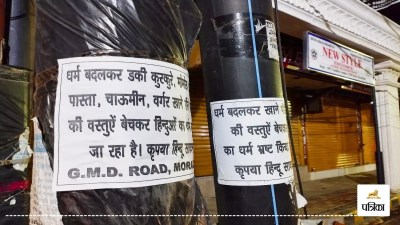 धर्म बदलकर डकी कुरकुरे,
पास्ता, चाऊमीन, बर्गर खाने
की वस्तुऐं बेचकर हिन्दुओं का
जा रहा है। कृपया हिन्दू
G.M.D. ROAD,
धर्म बदलकर खाने
की वस्तुऐं
का धर्म भ्रष्ट
कृपया हिन्दू
NEW STYLE
पत्रिका